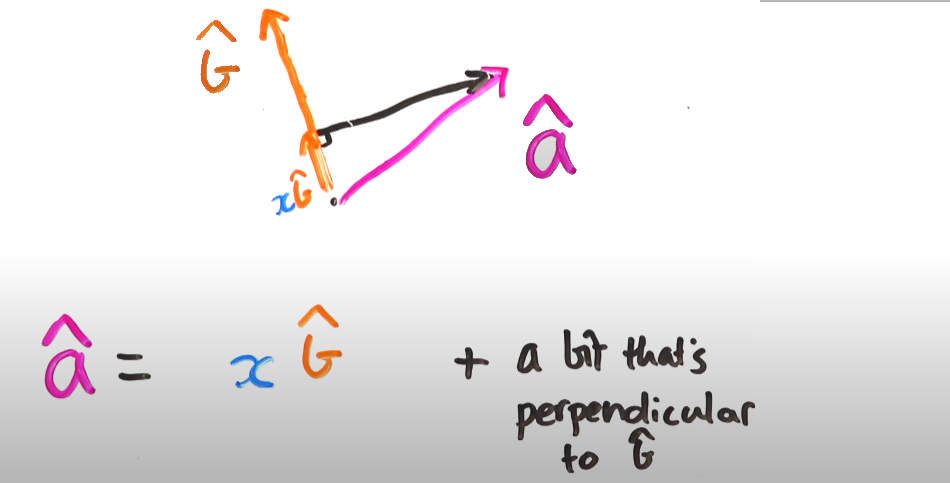 b̂
â
xb̂
â = x b̂ + a bit that's
perpendicular
to b̂